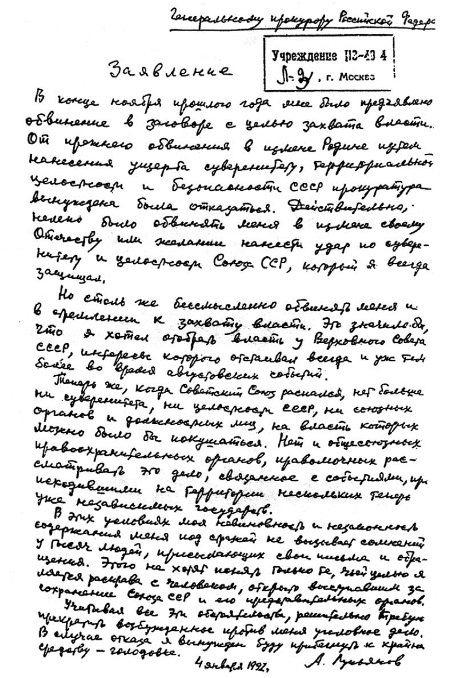 Генеральному прокурору Российской Федера
Учреждение ИЗ-48 4
г. Москва
Заявление
В конце ноября прошлого года мне было предъявлено
обвинение в заговоре с целью захвата власти.
От прежнего обвинения в измене Родине путем
нанесения ущерба суверенитету, территориальной
целостности и безопасности СССР прокуратура
вынуждена была отказаться. Действительно,
нелепо было обвинять меня в измене своему
Отечеству или желании нанести удар по сувере-
нитету и целостности Союза ССР, который я всегда
защищал.
Но столь же бессмысленно обвинять меня и
в стремлении к захвату власти. Это значило бы,
что я хотел отобрать власть у Верховного Совета
СССР, интересы которого отстаивал всегда и уж тем
более во время августовских событий.
Теперь же, когда Советский Союз распался, нет больше
ни суверенитета, ни целостности СССР, ни союзных
органов и должностных лиц, на власть которых
можно было бы покушаться. Нет и общесоюзных
правоохранительных органов, правомочных рас-
сматривать это дело, связанное с событиями, про
исходившими на территории нескольких теперь
уже независимых государств.
В этих условиях моя невиновность и незаконность
содержания меня под стражей не вызывает сомнений
у тысяч людей, присылающих свои письма и обра-
щения. Этого не хотят понять только те, чьей целью я
ляется расправа с человеком, открыто выступавшим за
сохранение Союза ССР и его представительных органов.
Учитывая все эти обстоятельства, решительно требую
прекратить возбужденное против меня уголовное дело.
В случае отказа я вынужден буду прибегнуть к крайне
средству – голодовке.
4 января 1992, А. Лукьянов